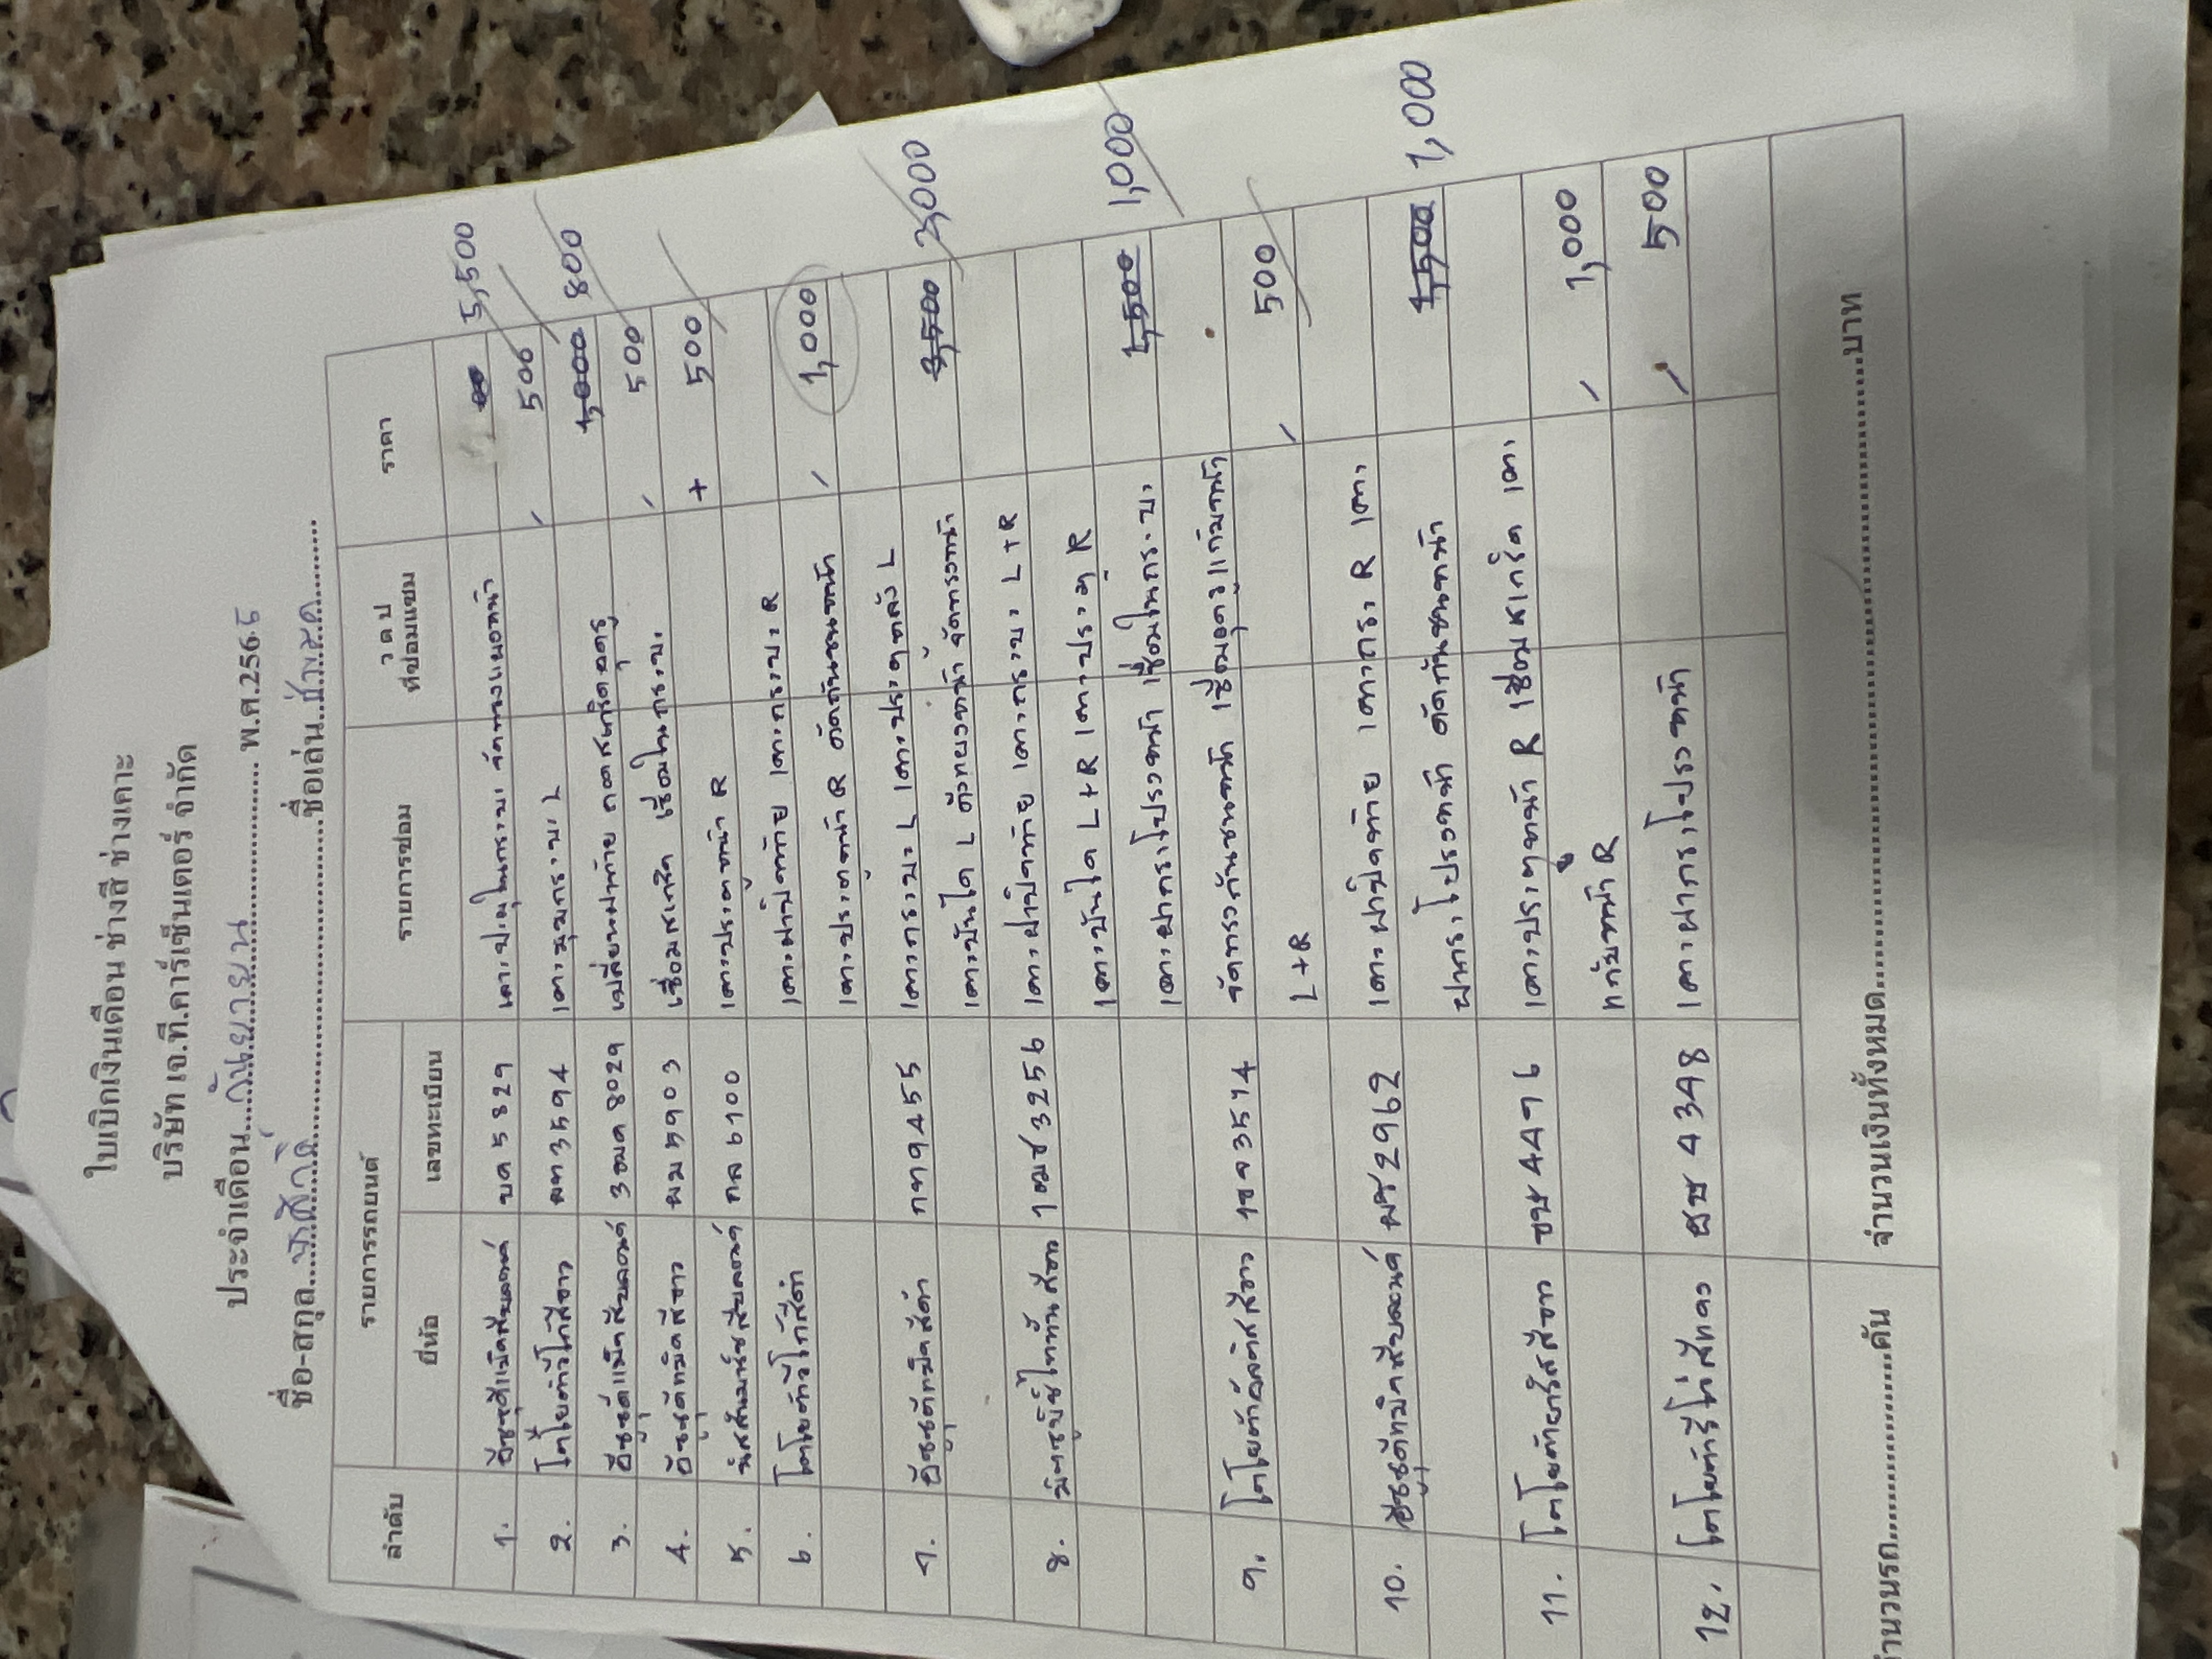 ใบเบิกเงินเดือน ช่างสี ช่างเคาะ
บริษัท เจ.ที.คาร์เซ็นเตอร์ จำกัด
ประจำเดือน....กันยายน.... พ.ศ.256
ชื่อ-สกุล..................ชื่อเล่น
ลำดับ รายการรถยนต์ รายการซ่อม ว ด ป ที่ซ่อมแซม ราคา
ยี่ห้อ เลขทะเบียน
1. อีซูซุดีแม็คสีบลอนด์ บด 5829 5,500
2. โตโยต้าวีโก้สีขาว ผท 3594 เคาะมุมกระบะ L 500
3. อีซูซุดีแม็กสีบลอนด์ 3ฒค 8029 เปลี่ยนฝาท้าย 1,000 800
4. อีซูซุดีแมคสีขาว ผม 5903 เชื่อมสเกริต เชื่อมในกระบะ 500
5. นิสสันมาร์ชสีบลอนด์ กล 6700 เคาะประตูหน้า R + 500
6. โตโยต้าวีโก้สีดำ เคาะฝาปิดท้าย เคาะกระบะ R
เคาะประตูหน้า R ดัดกันชนหน้า 1,000
7. อีซูซุดีแม็คสีดำ กท 9455 เคาะกระบะ L เคาะประตูหลัง L 3,500 3,000
เคาะบันได L
8. มิตซูบิชิไททันสีขาว 1ฒช 3256 เคาะฝาปิดท้าย เคาะกระบะ L+R
เคาะบันได L+R เคาะประตู R 1,500 1,000
เคาะฝากระโปรงหน้า เชื่อมในกระบะ
9. โตโยต้าอัลติสสีขาว 1ขจ 3574 500
L+R
10. อีซูซุดีแม็คสีบลอนด์ ผช 2962 เคาะฝาปิดท้าย เคาะกระ R เคาะ 1,500 1,000
ฝากระโปรงหน้า ดัดกันชนหน้า
11. โตโยต้ายาริสสีขาว ขษ 4496 เคาะประตูหน้า R เชื่อมสเกริต เคาะ 1,000
R
12. โตโยต้ารีโว่สีแดง ผช 4348 เคาะฝากระโปรงหน้า 500
จำนวนรถ....................คัน จำนวนเงินทั้งหมด..................................................บาท